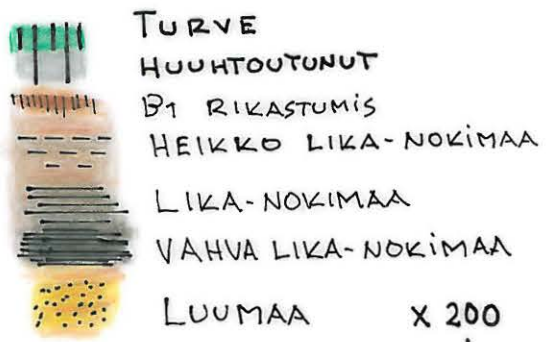 TURVE
HUUHTOUTUNUT
B1 RIKASTUMIS
HEIKKO LIKA-NOKIMAA
LIKA-NOKIMAA
VAHVA LIKA-NOKIMAA
LUUMAA X 200